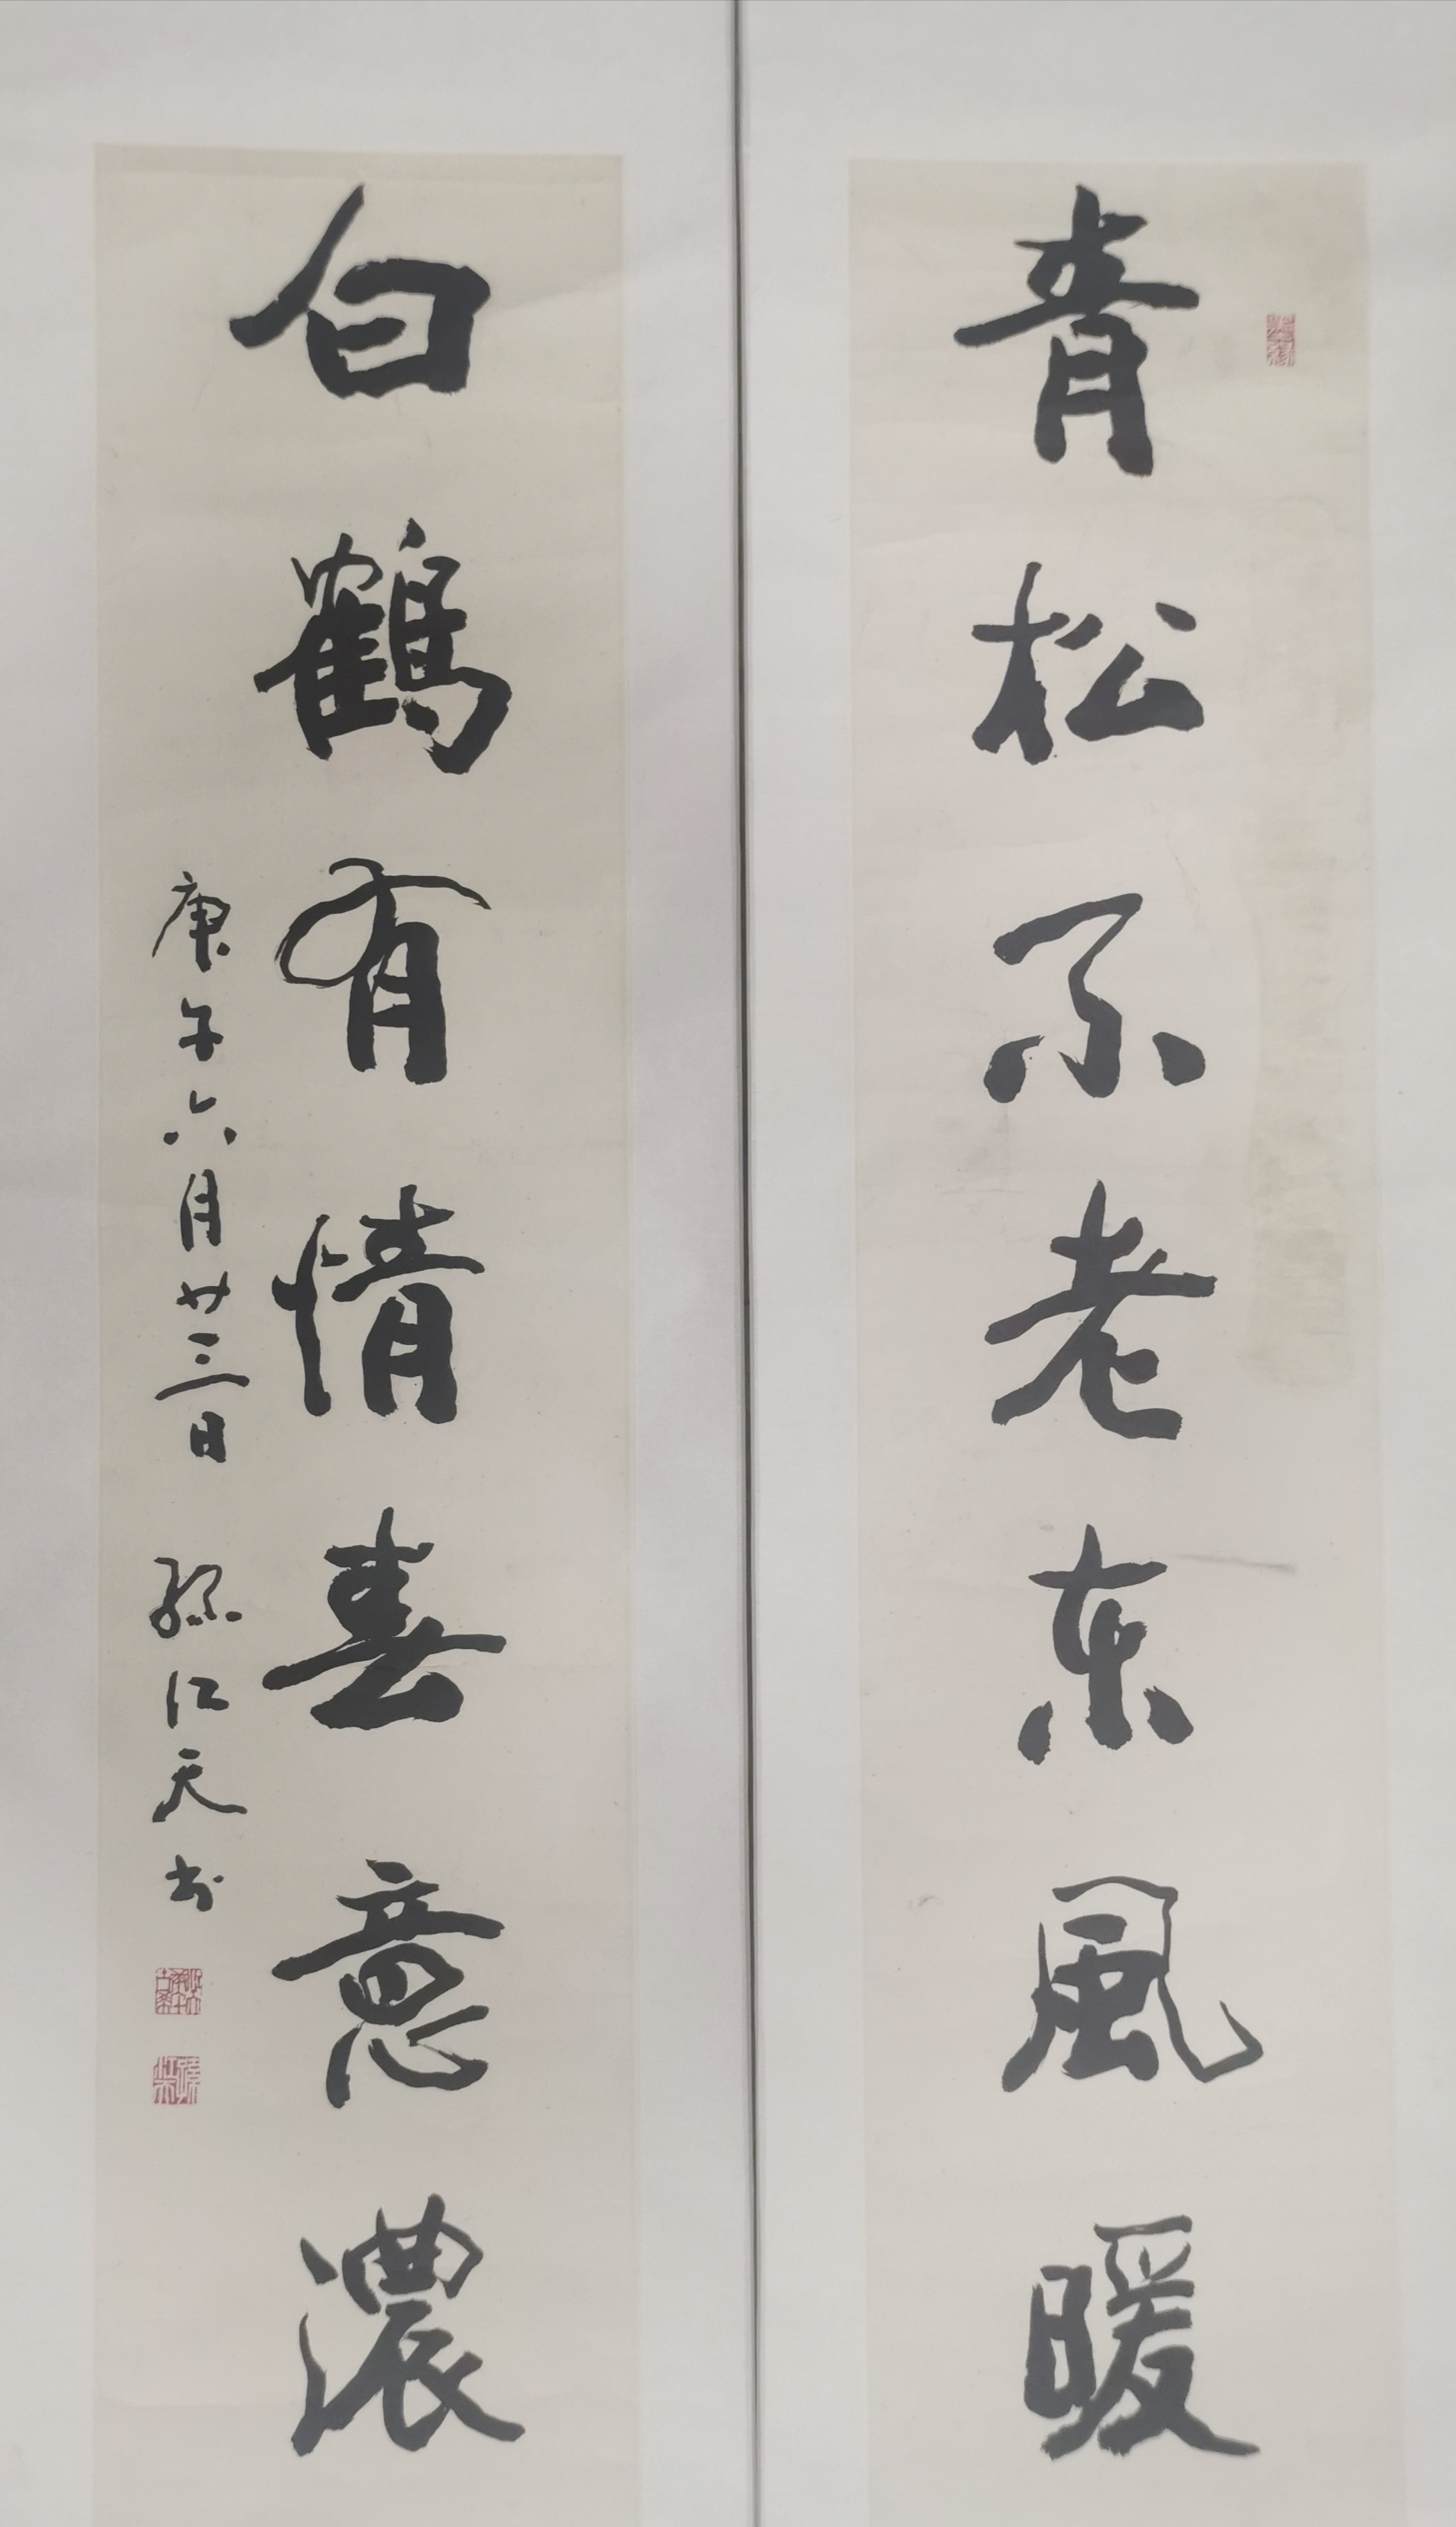 青松不老东風暖
白鶴有情春意濃
庚午六月廿三日 孙江天书